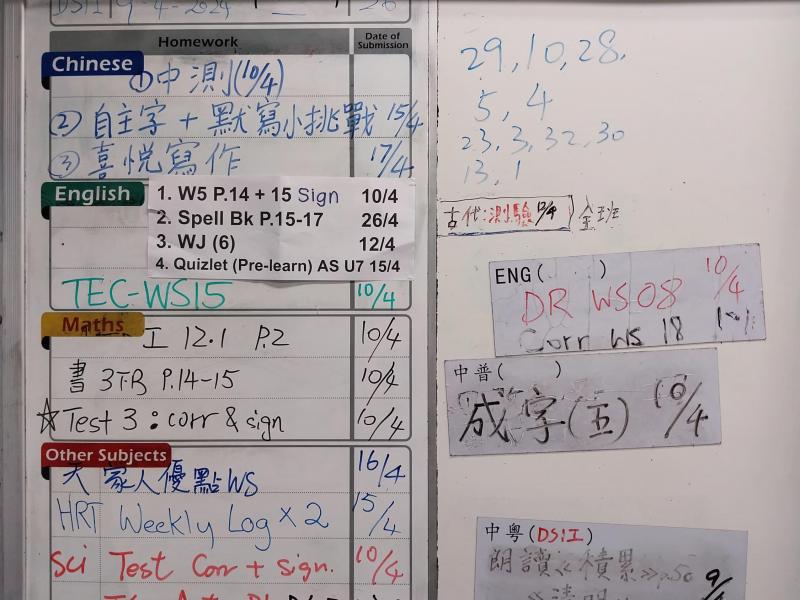 9-4-2024
Homework
Date of Submission
Chinese
①中測(10/4)
②自主字+默寫小挑戰 15/4
③喜悅寫作 17/4
English
1. W5 P.14 + 15 Sign 10/4
2. Spell Bk P.15-17 26/4
3. WJ (6) 12/4
4. Quizlet (Pre-learn) AS U7 15/4
TEC-WS15 10/4
Maths
工 12.1 P.2 10/4
書 3TB P.14-15 10/4
☆Test 3 : corr & sign 10/4
Other Subjects
天 家人優點WS 16/4
HRT Weekly Log × 2 15/4
Sci Test Corr + sign. 10/4
29, 10, 28.
5, 4
23, 3, 32, 30
13, 1
古代:測驗 全班
ENG( )
DR WS08 10/4
Corr WS 18
中普( )
成字(五) 10/4
中粵(DSII)
朗讀《積累》 50 9/4